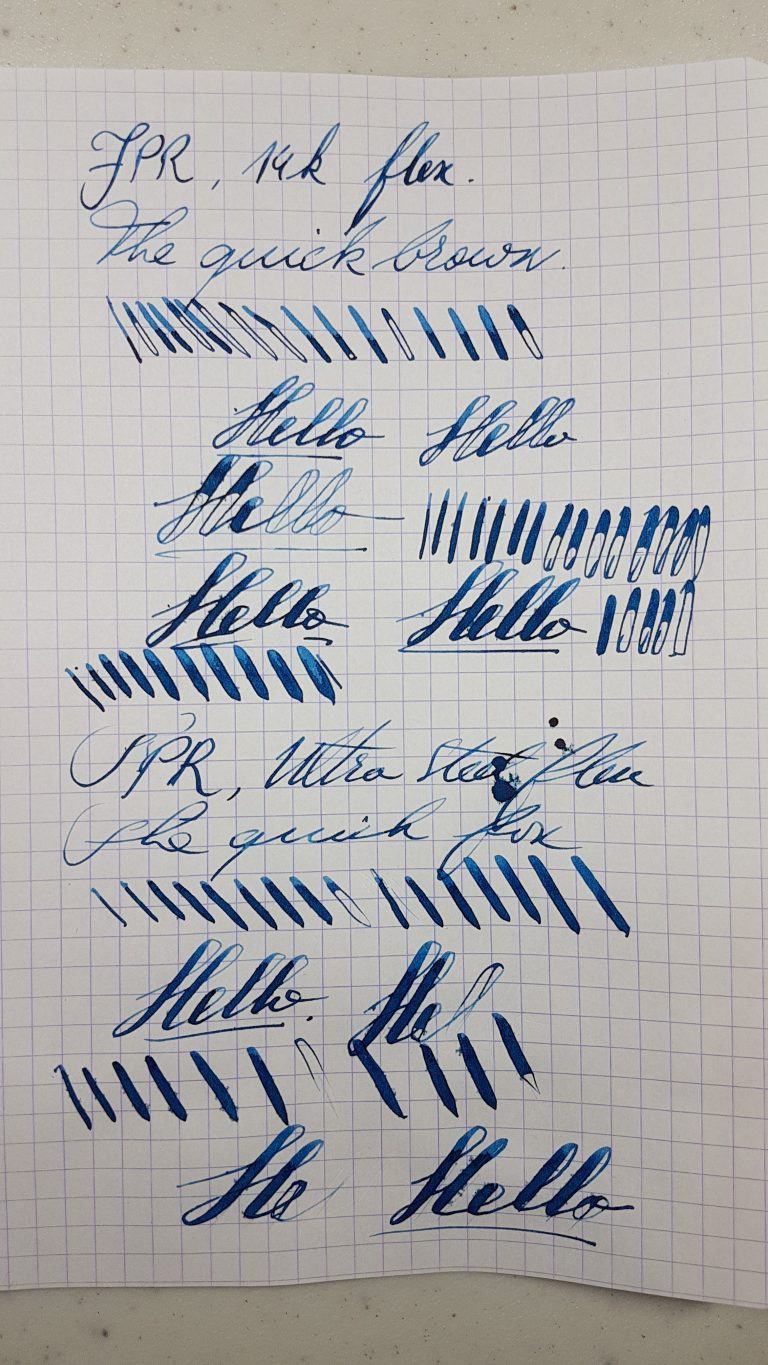 FPR, 14k flex.
The quick brown.
Hello Hello
Hello
Hello Hello
FPR, Ultra Steel flex
The quick fox
Hello. He
He Hello